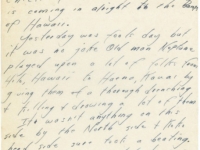 is coming in alright to the
of Hawaii.
Yesterday was fools day but
it was no joke Old man Neptune
played upon a lot of folks from
Hilo, Hawaii to Haena, Kauai by
giving them a thorough drenching
& killing & drowning a lot of them
It wasn't anything on this
side by the North side &
side sure took a beating.